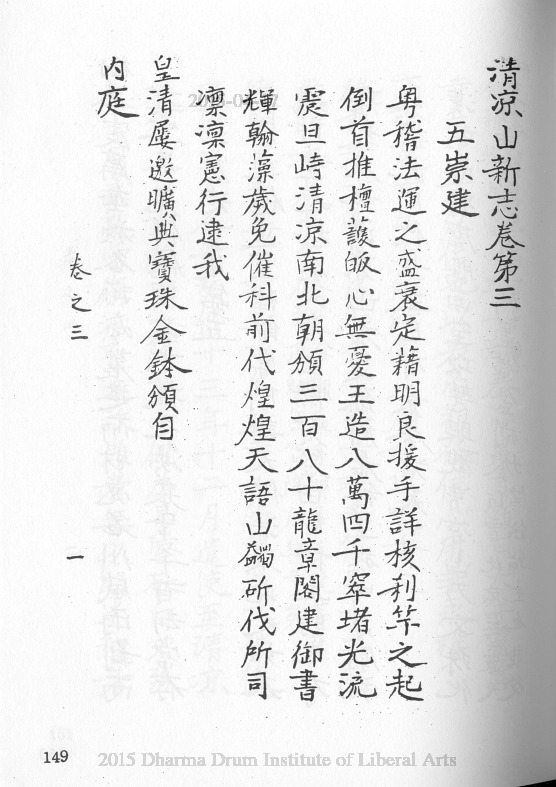 清凉山新志卷第三
五崇建
粤稽法運之盛衰定藉明良援手詳核刹竿之起
倒首推檀護皈心無憂王造八萬四千窣堵光流
震旦峙清凉南北朝頒三百八十龍章閣建御書
輝翰藻歲免催科前代煌煌天語山蠲斫伐所司
凛凛憲行逮我
皇清屢邀曠典寶珠金鉢頒自
内庭
卷之三 一
149
2015 Dharma Drum Institute of Liberal Arts